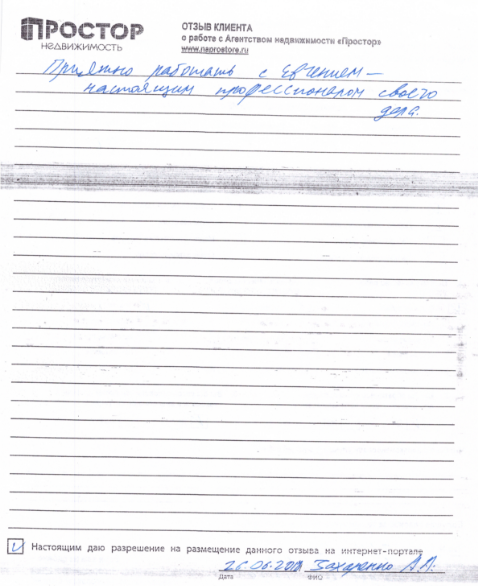 ПРОСТОР
НЕДВИЖИМОСТЬ
ОТЗЫВ КЛИЕНТА
о работе с Агентством недвижимости «Простор»
www.naprostore.ru
Приятно работать с Евгением —
настоящим профессионалом своего
дела.
Настоящим даю разрешение на размещение данного отзыва на интернет-портале
Захаренко А.А.
Дата ФИО